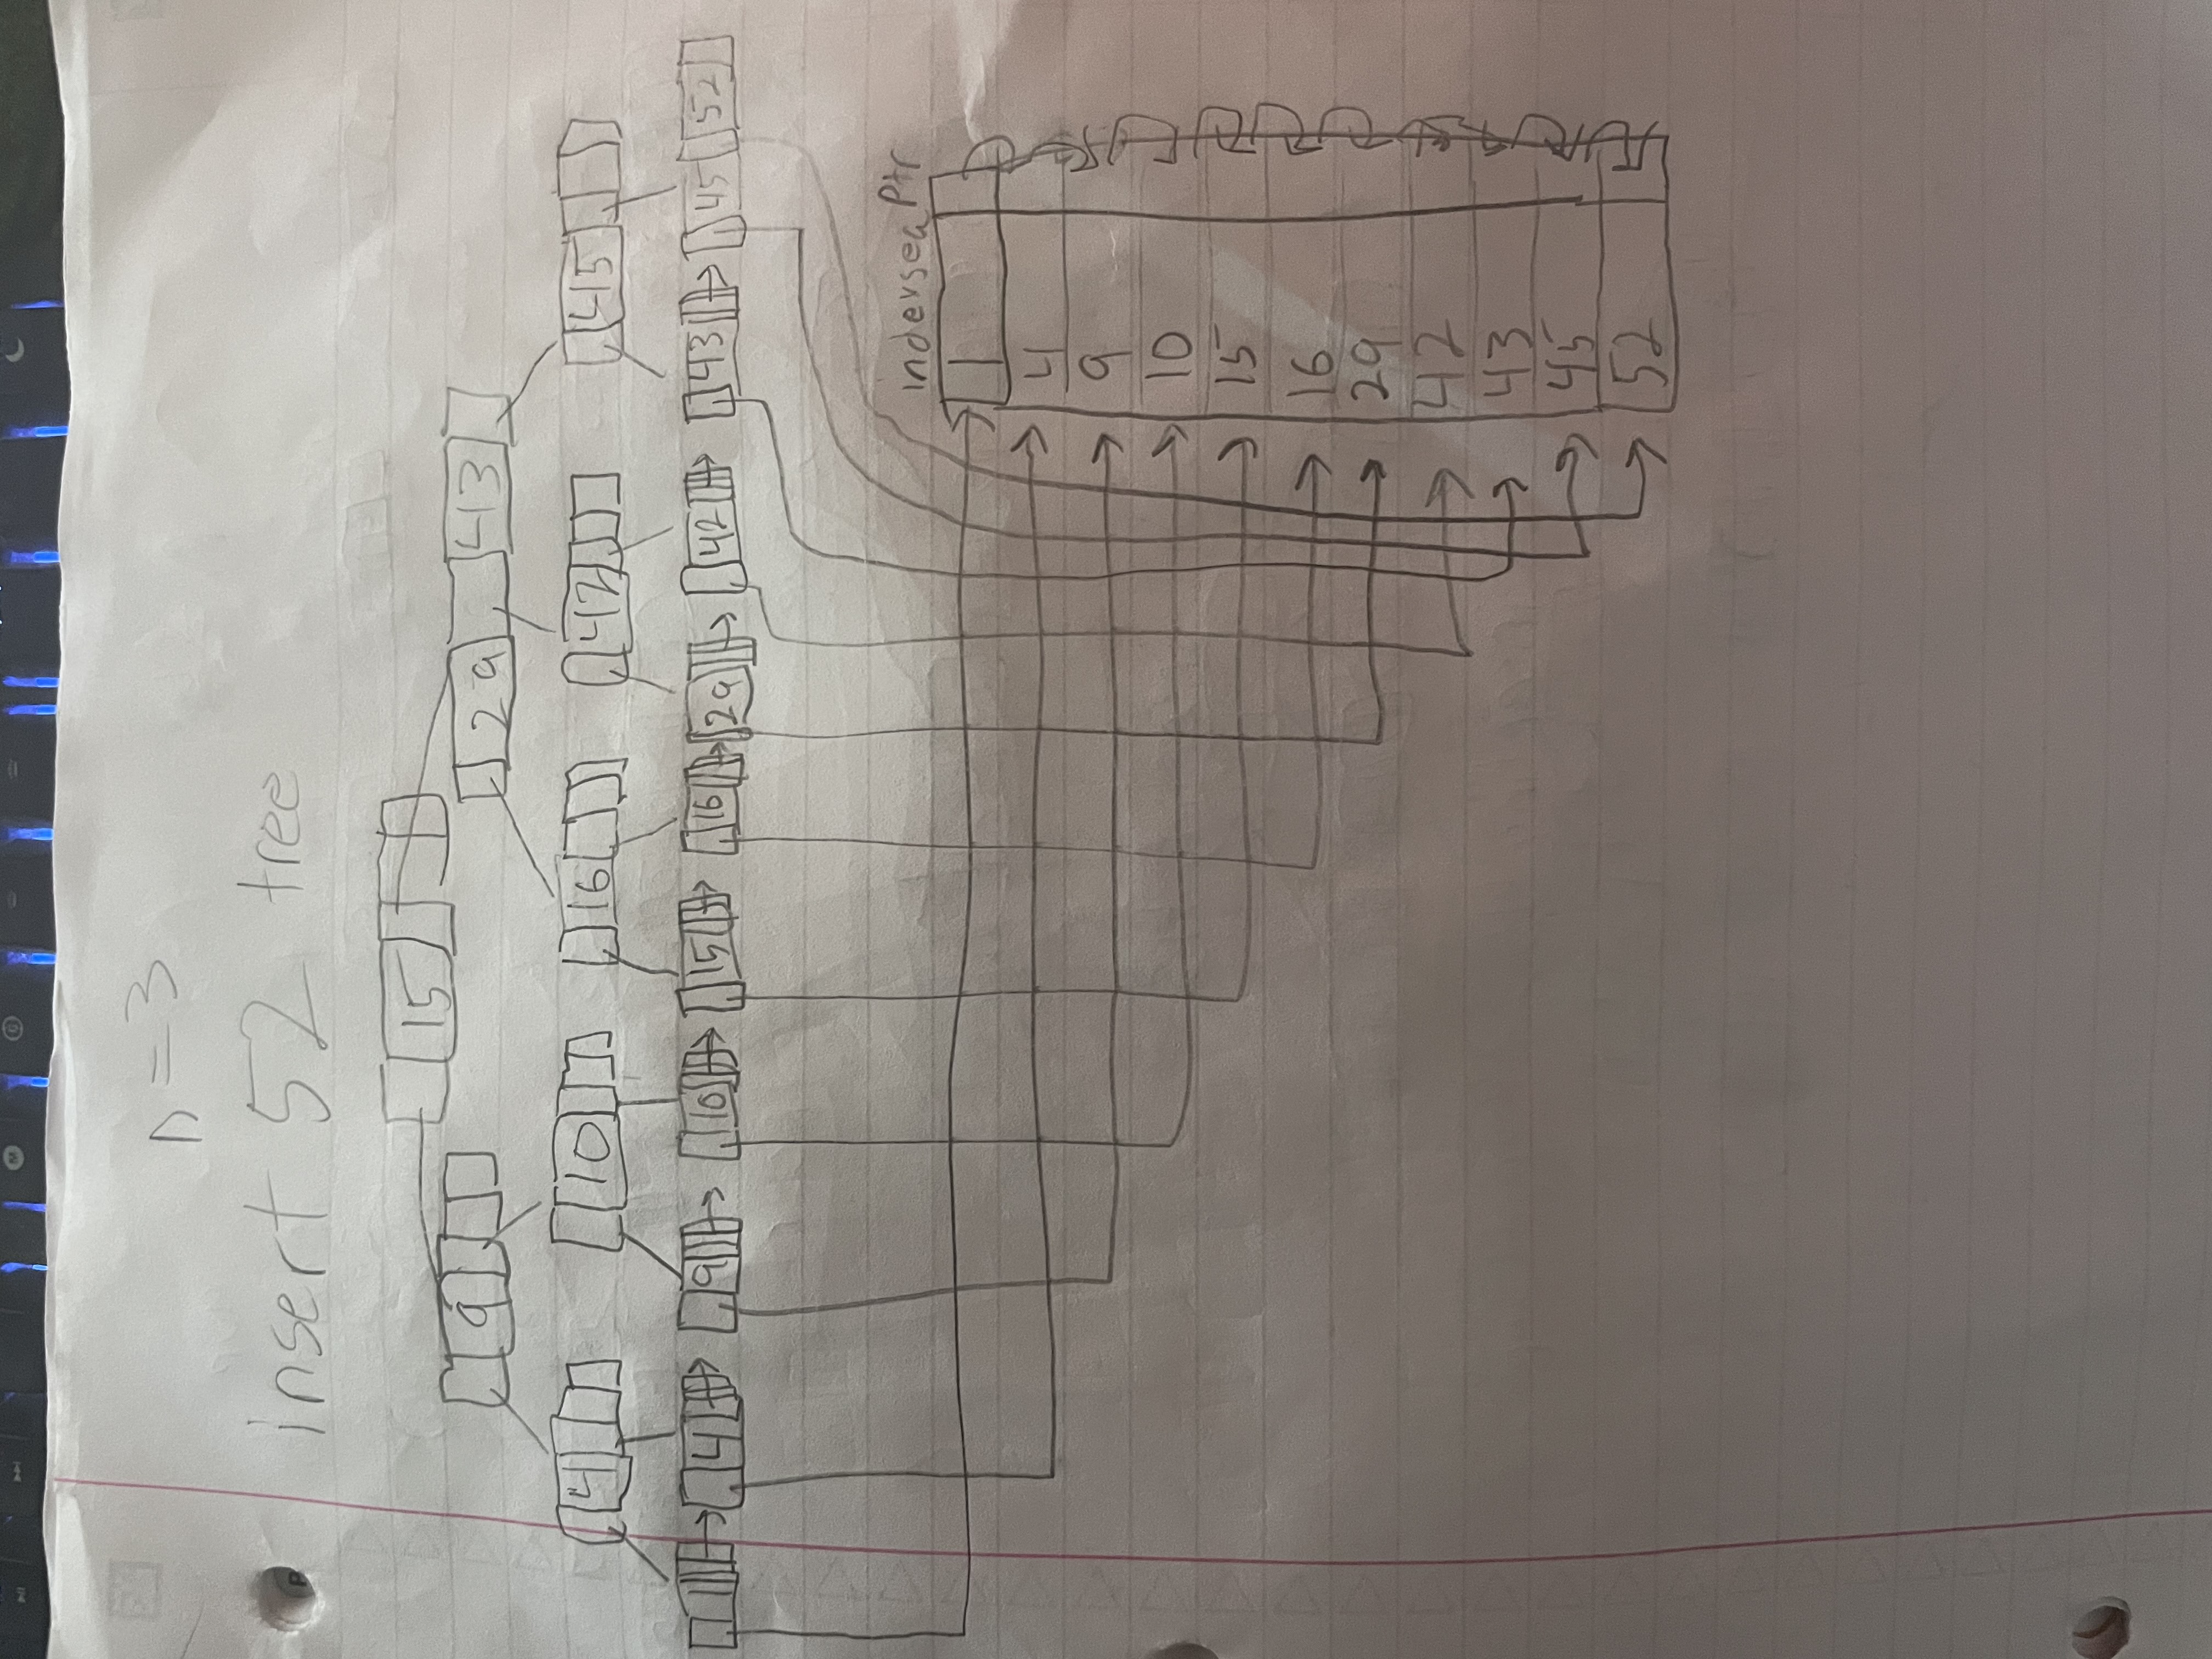 n=3
insert 52 tree
15
9 29 43
4 10 16 42 45
1 4 9 10 15 16 29 42 43 45 52
Ptr
1
4
9
10
15
16
29
42
43
45
52